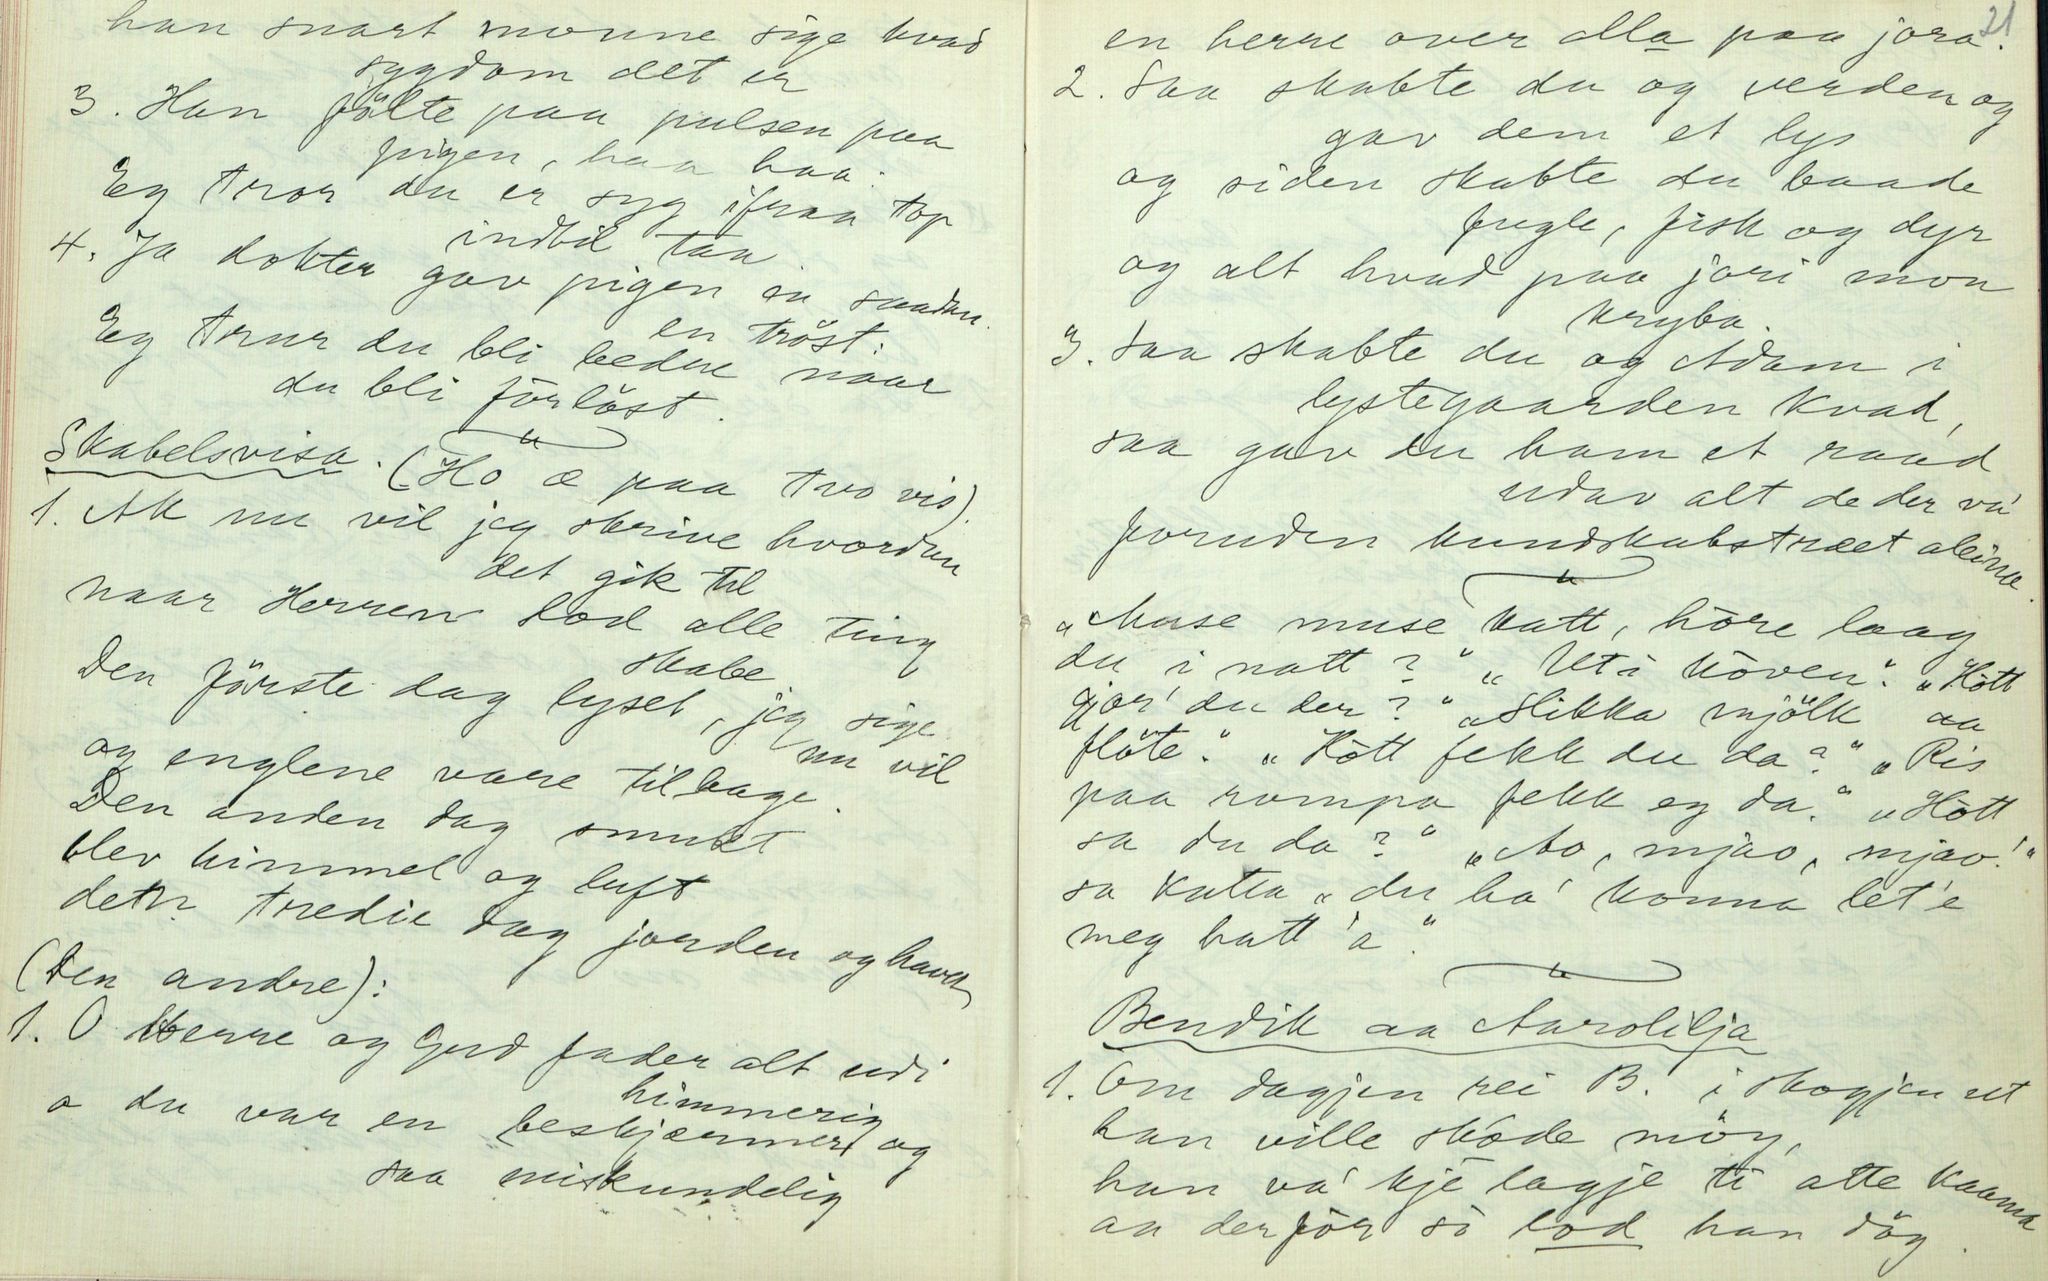 han snart monne sige hvad
sygdom det er
3. Han fölte paa pulsen paa
pigen, haa haa.
Eg tror du er syg ifraa top
indtil taa.
4. Ja dokter gav pigen en saadan
en tröst:
Eg trur du bli bedre naar
du bli förlöst.
Skabelsvisa. (Ho æ paa tvo vis).
1. Ak nu vil jeg skrive hvordan
det gik til
naar Herren lod alle ting
skabe
Den förste dag lyset, jeg sige
nu vil
og englene vare tilbage.
Den anden dag smukt
blev himmel og luft
den tredie dag jorden og havet
(Den andre):
1. O Herre og Gud fader alt udi
himmerig
o du var en beskjærmer og
saa miskundelig
21
en herre over alla paa jora.
2. Saa skabte du og verden og
gav dem et lys
og siden skabte du baade
fugle, fisk og dyr
og alt hvad paa jori mon
kryba.
3. Saa skabte du og Adam i
lystegaarden kvad,
saa gav du ham et raad
udav alt de der va'
foruden kundskabstræet aleine.
"Muse muse katt, höre laag
du i natt?" "Uti köven". "Hött
gjor' du der?" "Slikka mjölk aa
flöte." "Hött fekk du da?" "Ris
paa rompa fekk eg da." "Hött
sa du da?" "Ao, mjao, mjao!"
sa katta "du ha' konna let'e
meg hatt'a."
Bendik aa Aarolilja
1. Om dagjen rei B. i skogjen ut
han ville skode möy,
han va' kje lagje ti atte kaama
aa derför so lod han döy.